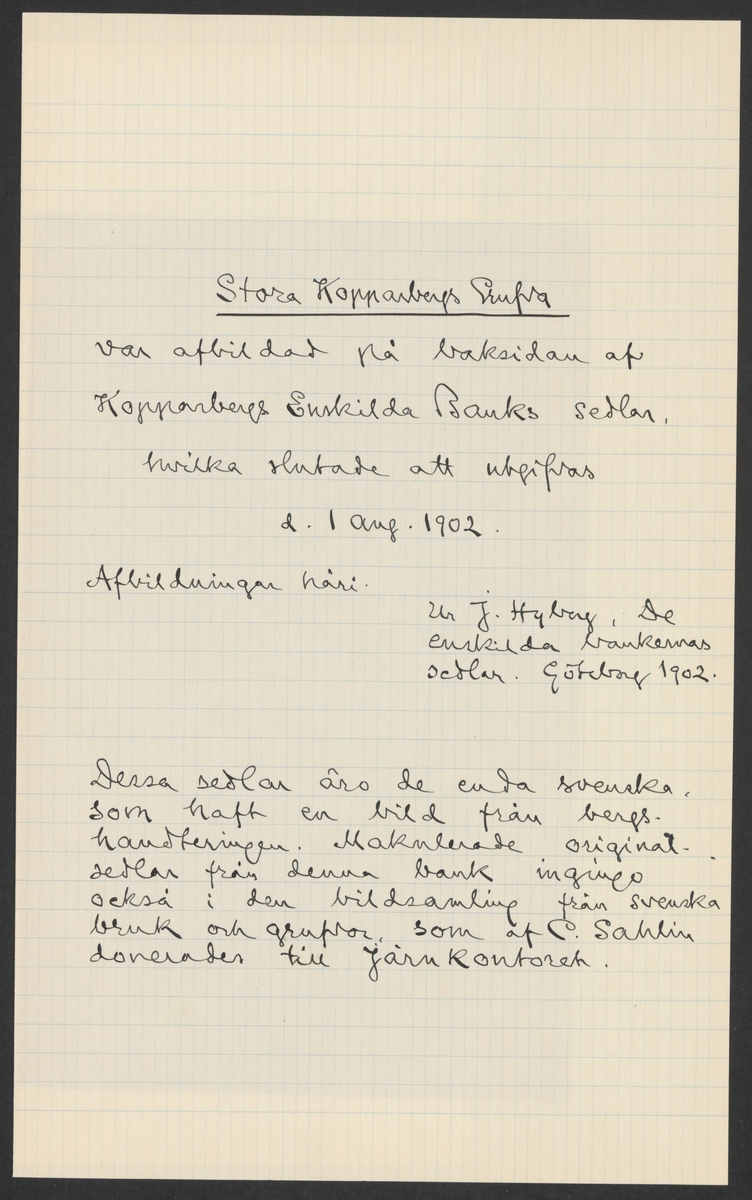 Stora Kopparbergs Grufva
var afbildad på baksidan af
Kopparbergs Enskilda Banks sedlar,
hvilka slutade att utgifvas
d. 1 Aug. 1902.
Afbildningar häri.
Ur J. Hyberg, De
enskilda bankernas
sedlar. Göteborg 1902.
Dessa sedlar äro de enda svenska,
som haft en bild från bergs-
handteringen. Makulerade original-
sedlar från denna bank ingingo
också i den bildsamling från svenska
bruk och grufvor, som af C. Sahlin
donerades till Järnkontoret.